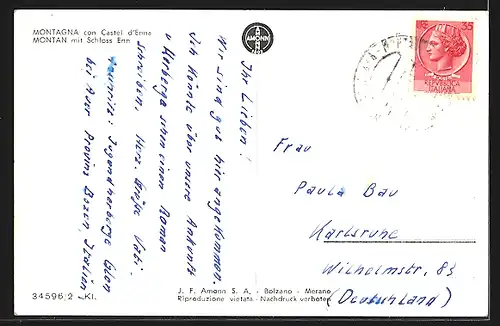 MONTAGNA con Castel d'Enna
MONTAN mit Schloss Enn
AMONN
35
REPVBBLICA
ITALIANA
Ihr Lieben!
Wir sind gut hier angekommen.
Ich könnte über unsere Ankunft
u Herberge schon einen Roman
schreiben. Herz. Grüße
Jugendherberge Glen
bei Auer Provinz Bozen, Italien
Frau
Paula Bau
Karlsruhe
Wilhelmstr. 83
(Deutschland)
J. F. Amonn S. A. - Bolzano - Merano
Riproduzione vietata - Nachdruck verboten
34596/2 Kl.